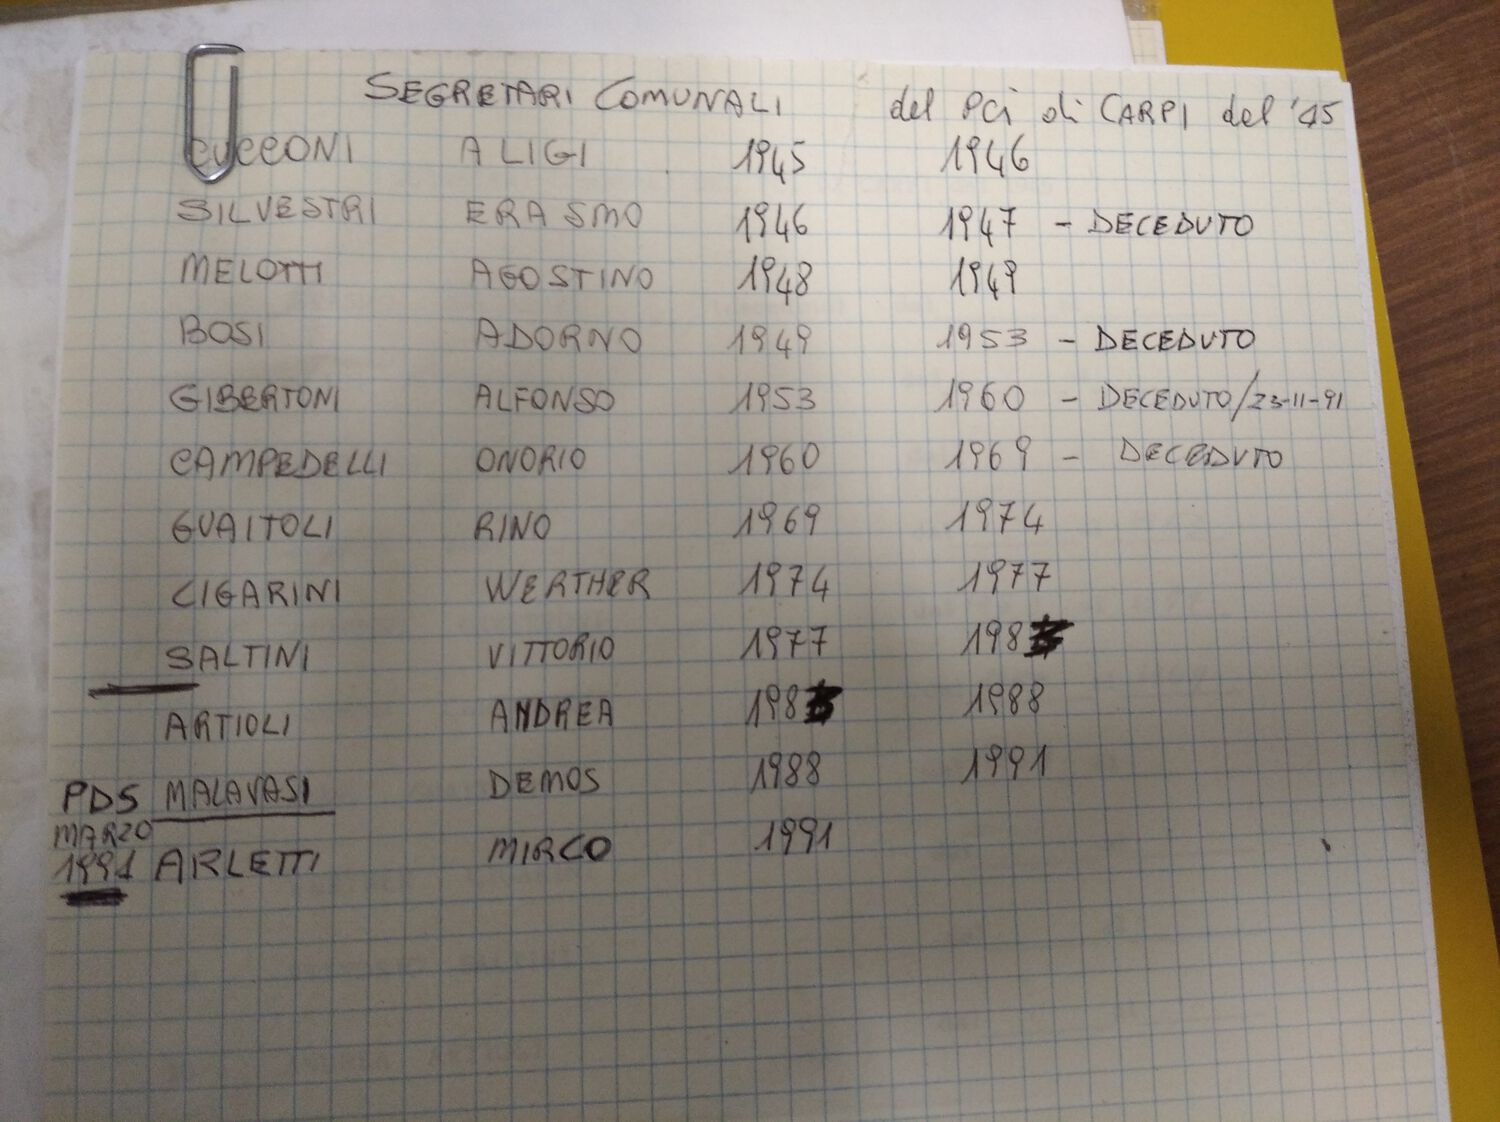 SEGRETARI COMUNALI del PCi di CARPI del '45
CUCCONI ALIGI 1945 1946
SILVESTRI ERASMO 1946 1947 - DECEDUTO
MELOTTI AGOSTINO 1948 1949
BOSI ADORNO 1949 1953 - DECEDUTO
GIBERTONI ALFONSO 1953 1960 - DECEDUTO/23-11-91
CAMPEDELLI ONORIO 1960 1969 - DECEDUTO
GUAITOLI RINO 1969 1974
CIGARINI WERTHER 1974 1977
SALTINI VITTORIO 1977 198
ARTIOLI ANDREA 198 1988
PDS MALAVASI DEMOS 1988 1991
MARZO
1991 ARLETTI MIRCO 1991